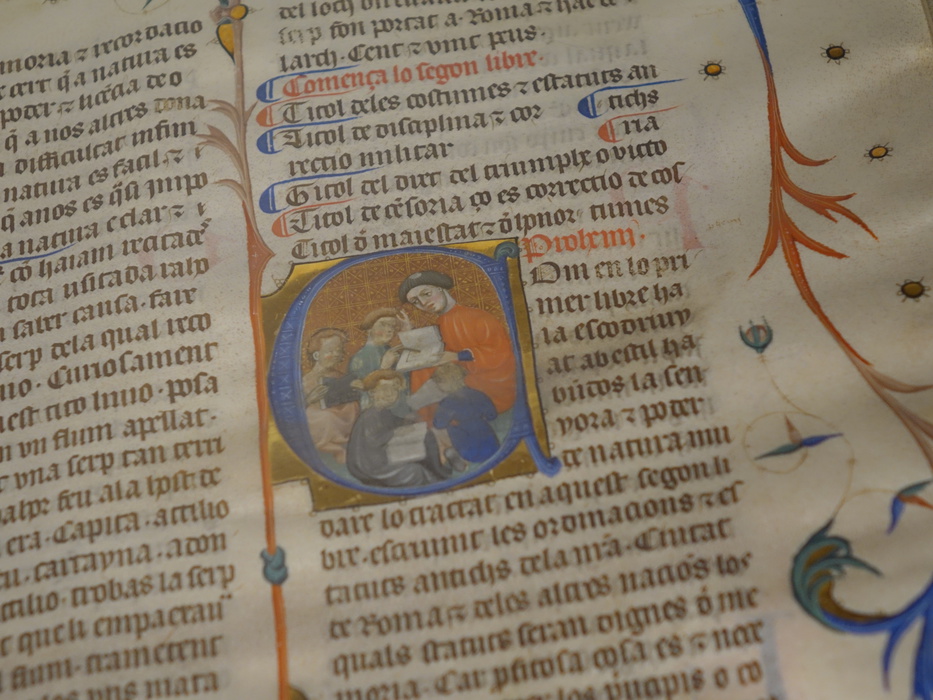 moria ⁊ recordacio
natura es
poder ⁊ licẽcia de o
q̃ a nos altres dona
difficultat infim
natura es facil ⁊
q̃ anos es q̃si impo
a natura e clar ⁊
cõ haiam recitade
cota usitada
saber causa. fair
serp dela qual reco
Curiosament
tito liuio. posa
vn flum apellat.
vna serp tan terri
feu ala host de
Capita. attilio
cartayna. adon
trobas la serp
queli empatxau
flum. trametent
los uns mata
del loch
serp fon portat a. Roma ⁊
larch. Cent ⁊ vint peus.
Comença lo segon libre.
Titol deles costumes ⁊ estatuts an
tichs
Titol de disciplina ⁊ cor
reccio militar
ria
Titol del dret del triumphe o victo
Titol de cẽsoria ço es correctio de cos
tumes
Titol ð maiestat ⁊ ð honor
Prolech.
Om en lo pri
mer libre ha
ia escodriny
at ab estil ha
bũdos la sen
yora ⁊ poder
de natura mu
dare lo tractat en aquest segon li
bre. escriuint les ordinacions ⁊ es
tatuts antichs dela nr̃a. Ciutat
de Roma ⁊ deles altres naciõs los
quals statuts seran dignes ð me
moria. Car pfitosa cosa es ⁊ nece
los p̃ncipis o co